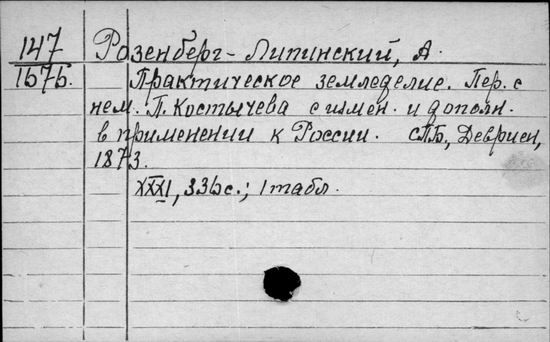 147 Розенберг-Липинский, А.
167б. Практическое земледелие. Пер. с
нем. П. Костычева с измен. и дополн.
в применении к России. СПБ., Девриен,
1873.
XXXI, 336 с.; 1 табл.